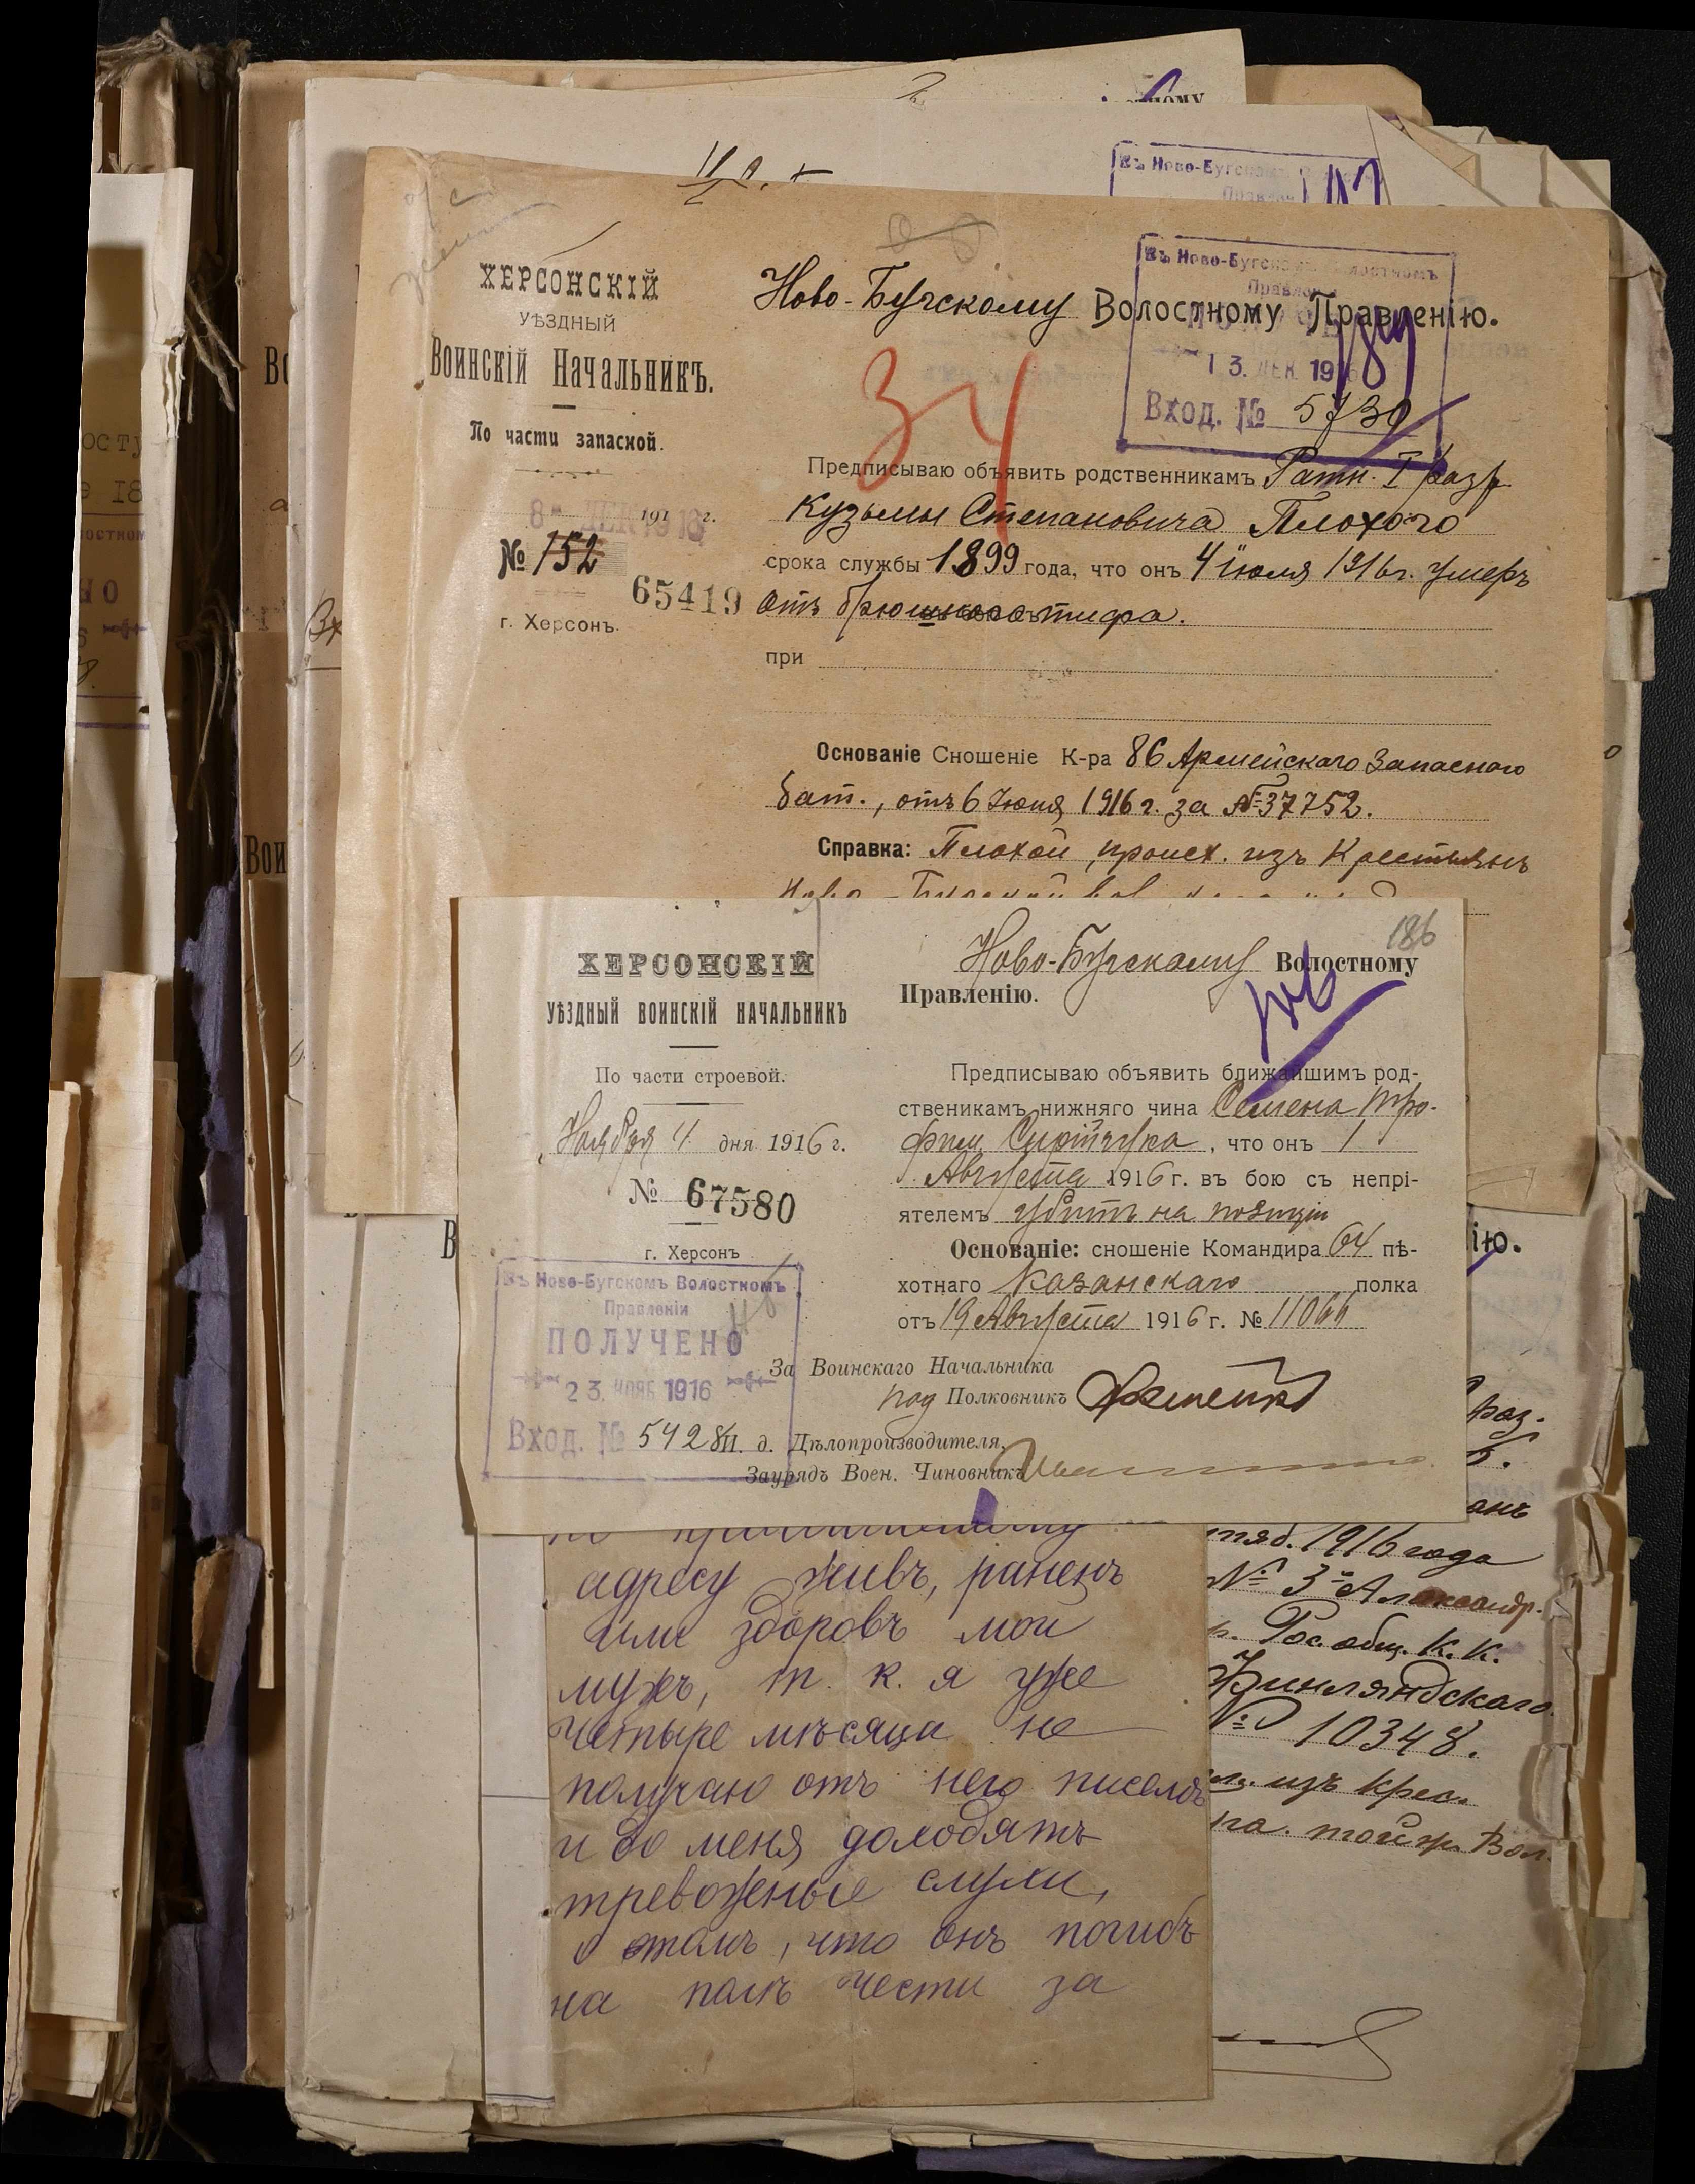 ХЕРСОНСКІЙ
УѢЗДНЫЙ
ВОИНСКІЙ НАЧАЛЬНИКЪ.
По части запасной.
8 ДЕК 1916 г.
№ 152
65419
г. Херсонъ.
Ново-Бугскому Волостному Правленію.
Въ Ново-Бугскомъ Волостномъ
Правленіи
13. ДЕК. 1916
Вход. № 5730
Предписываю объявить родственникамъ Ратн. I разр.
Кузьмы Степановича Плохого
срока службы 1899 года, что онъ 4 Іюля 1916 г. умеръ
отъ брюшного тифа.
при
Основаніе Сношеніе К-ра 86 Армейскаго Запасного
бат., отъ 6 Іюня 1916 г. за № 37752.
Справка: Плохой, происх. изъ Крестьянъ
186
ХЕРСОНСКІЙ
УѢЗДНЫЙ ВОИНСКІЙ НАЧАЛЬНИКЪ
По части строевой.
Ноября 4 дня 1916 г.
№ 67580
г. Херсонъ
Въ Ново-Бугскомъ Волостномъ
Правленіи
ПОЛУЧЕНО
23. НОЯБ 1916
Вход. № 5428
Ново-Бугскому Волостному
Правленію.
Предписываю объявить ближайшимъ род-
ственикамъ нижняго чина Семена Тро-
фим. , что онъ 1
Августа 1916 г. въ бою съ непрі-
ятелемъ убитъ на позиціи
Основаніе: сношеніе Командира 64 пѣ-
хотнаго Казанскаго полка
отъ 19 Августа 1916 г. № 11066
За Воинскаго Начальника
под Полковникъ
И. д. Дѣлопроизводителя,
Заурядъ Воен. Чиновникъ
адресу живъ, раненъ
или здоровъ мой
мужъ, т. к. я уже
четыре мѣсяца не
получаю отъ него писемъ
и до меня доходятъ
тревоженые слухи,
о томъ, что онъ погибъ
на полѣ чести за
1916 года
№ 3 Александр.
Рос. общ. К. К.
Финляндскаго
№ 10348.
изъ крес.
той ж. Вол.